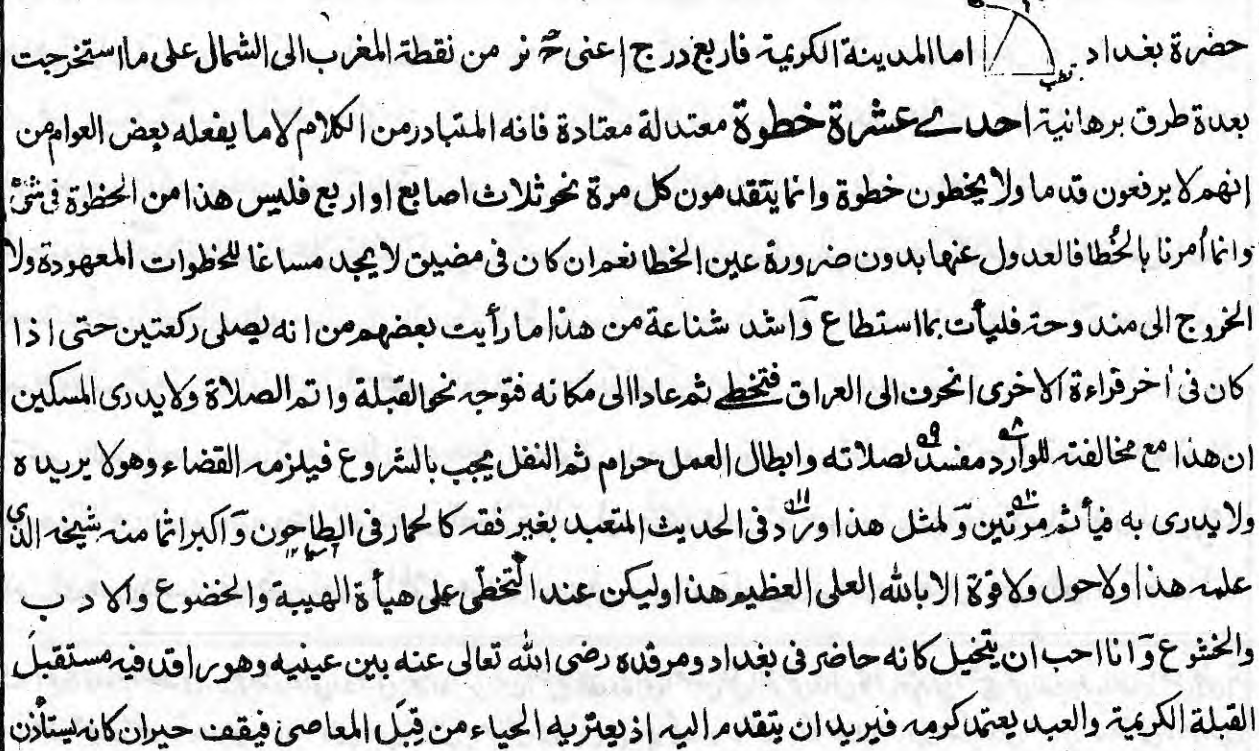 حضرة بغداد اما المدينة الكريمة فاربع درج اعنى نر من نقطة المغرب الى الشمال على ما استخرجت
بعدة طرق برهانية احدى عشرة خطوة معتدلة معتادة فانه المتبادر من الكلام لا ما يفعله بعض العوام من
انهم لا يرفعون قدما ولا يخطون خطوة وانما يتقدمون كل مرة نحو ثلاث اصابع او اربع فليس هذا من الخطوة فى شئ
وانما أمرنا بالخُطا فالعدول عنها بدون ضرورة عين الخطا نعم ان كان فى مضيق لا يجد مساغا للخطوات المعهودة ولا
الخروج الى مندوحة فليأت بما استطاع وَاشد شناعة من هذا ما رأيت بعضهم من انه يصلى ركعتين حتى اذا
كان فى اٰخر قراءة الاخرى انحرف الى العراق فتخطے ثم عاد الى مكانه فتوجه نحو القبلة واتم الصلاة ولا يدرى المسكين
ان هذا مع مخالفته للوارد مفسد لصلاته وابطال العمل حرام ثم النفل يجب بالشروع فيلزمه القضاء وهو لا يريده
ولا يدرى به فيأثم مرتين وَلمثل هذا ورد فى الحديث المتعبد بغير فقه كالحمار فى الطاحون وَاكبر اثما منه شيخه الذى
علمه هذا ولا حول ولا قوة الا بالله العلى العظيم هذا وليكن عند التخطّى على هيأة الهيبة والخضوع والادب
والخشوع وَانا احب ان يتخيل كانه حاضر فى بغداد ومرقده رضى الله تعالى عنه بين عينيه وهو راقد فيه مستقبلَ
القبلة الكريمة والعبد يعتمد كرمه فيريد ان يتقدم اليه اذ يعتريه الحياء من قِبَل المعاصى فيقف حيران كانه يستأذن